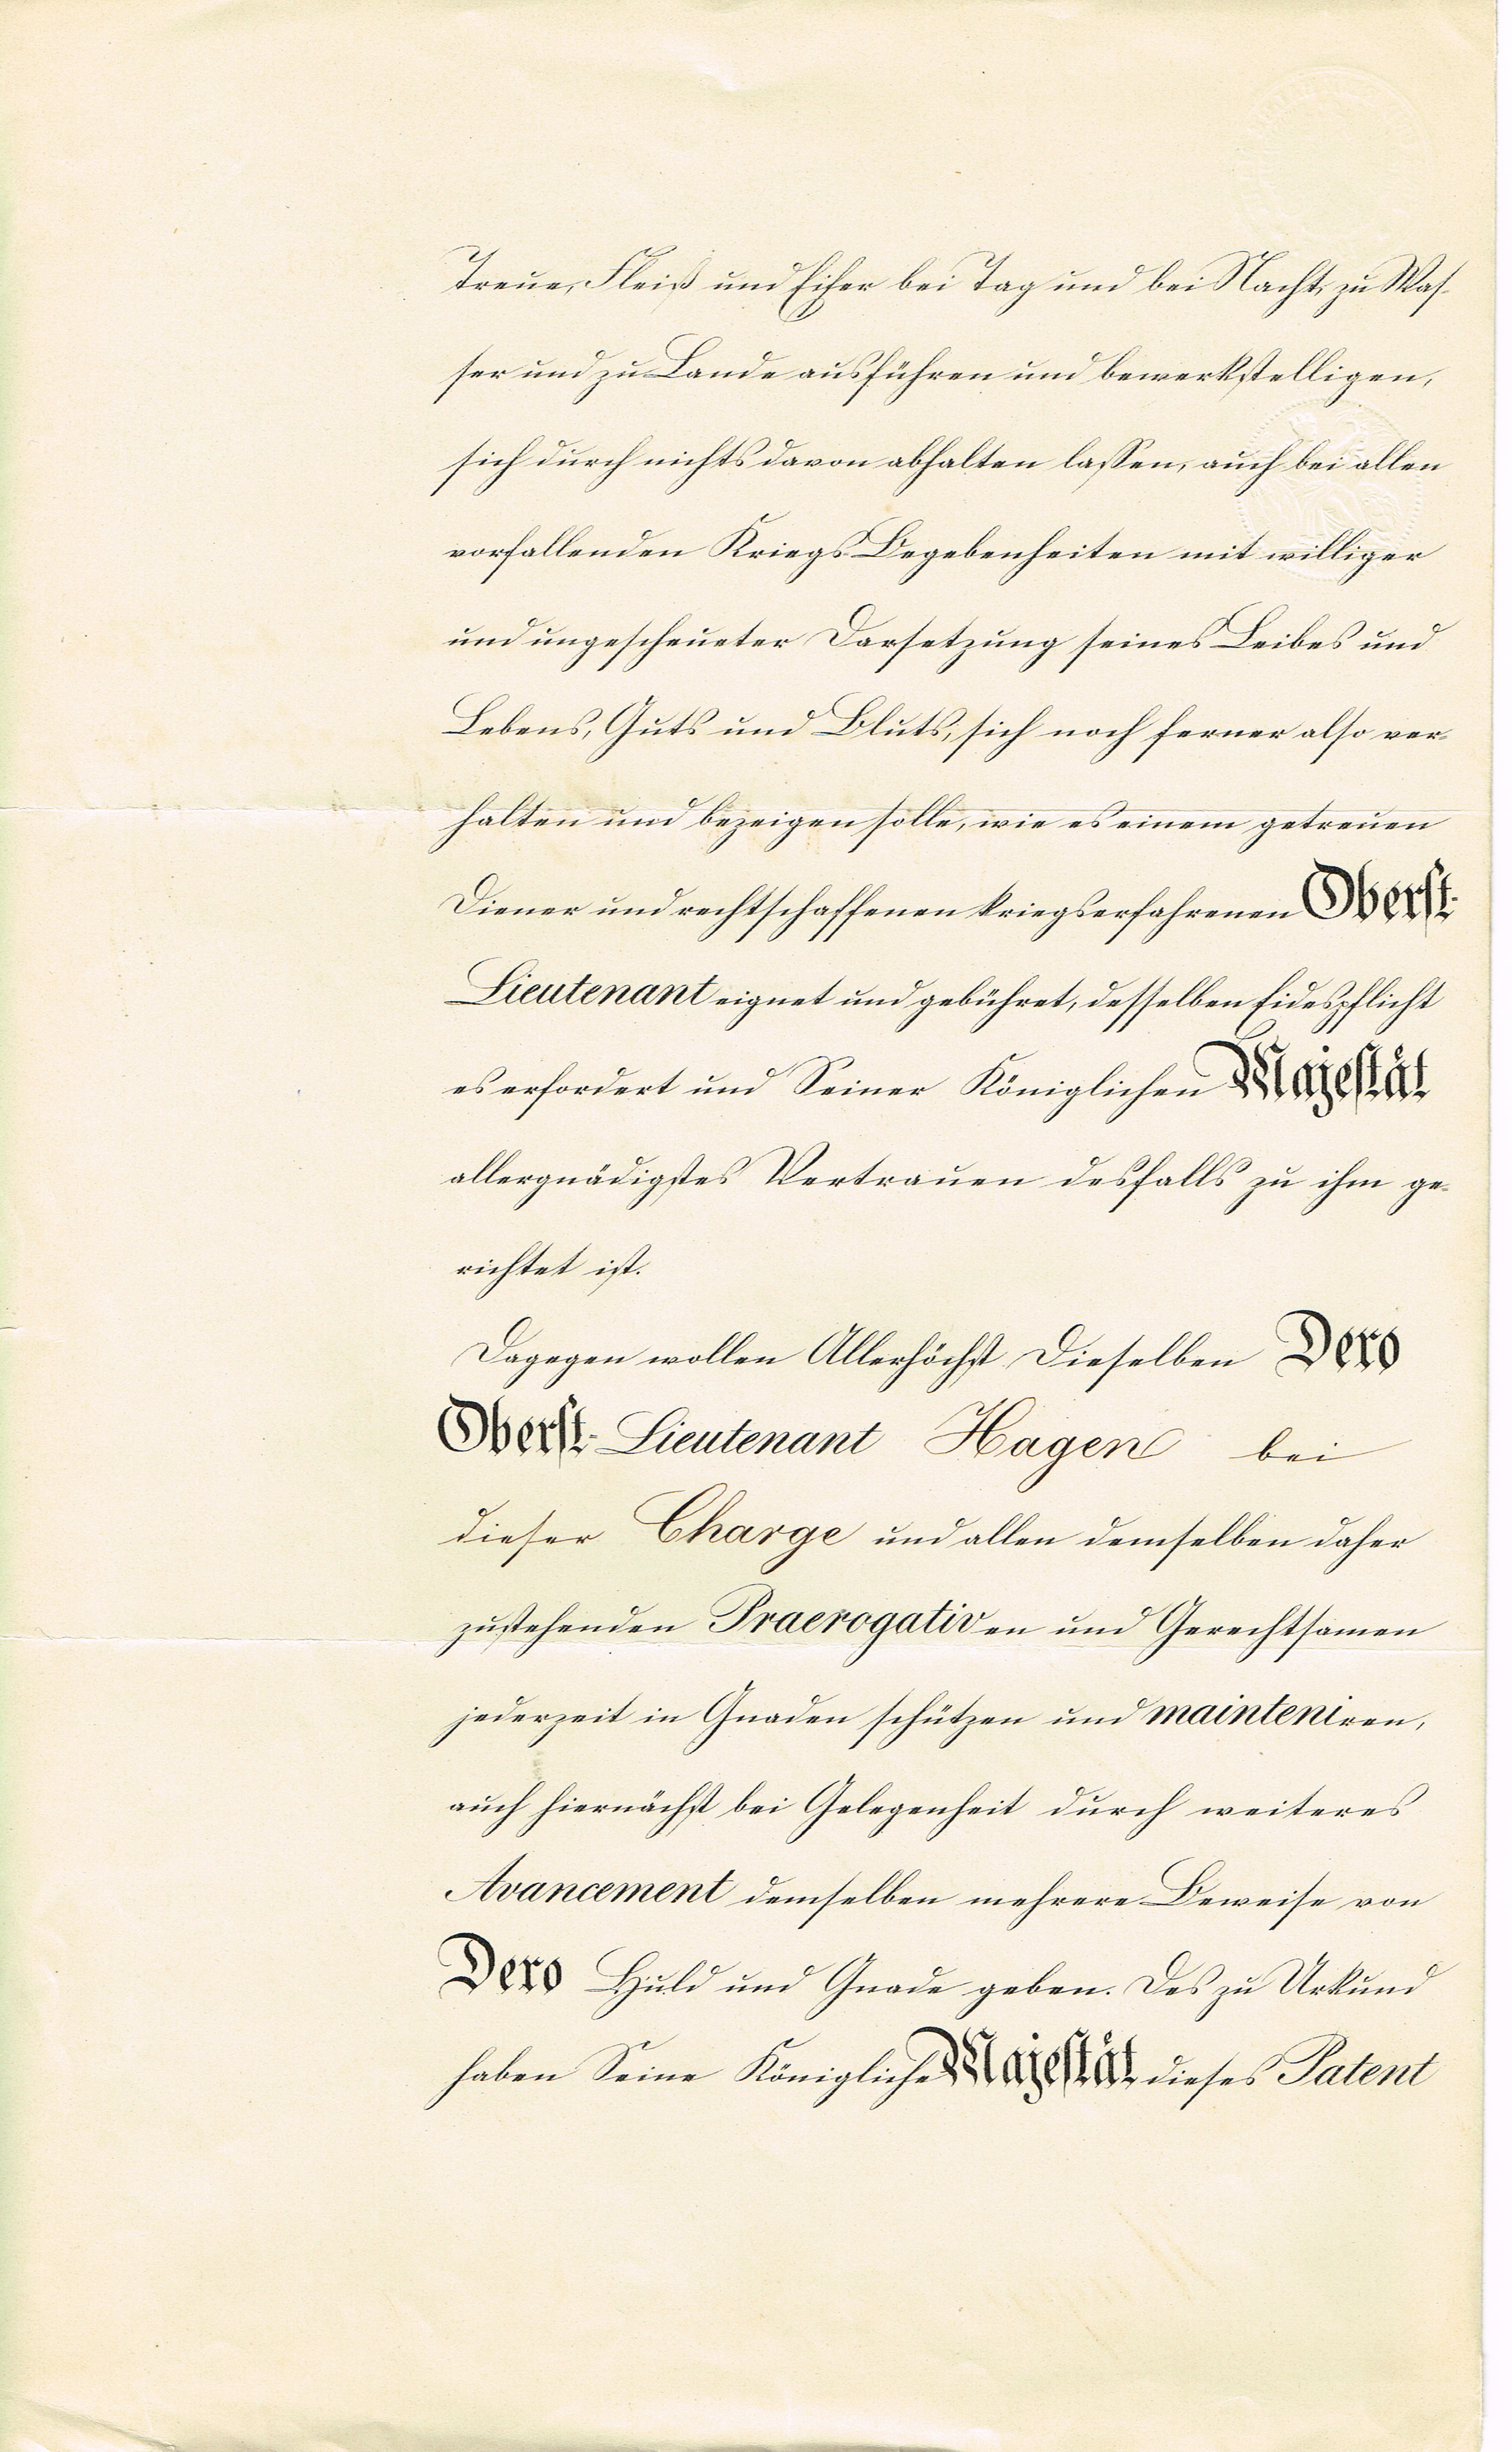 Treue, Fleiß und Eifer bei Tag und bei Nacht, zu Was-
ser und zu Lande ausführen und bewerkstelligen,
sich durch nichts davon abhalten lassen, auch bei allen
vorfallenden Kriegs-Begebenheiten mit williger
und ungescheueter Darsetzung seines Leibes und
Lebens, Guts und Bluts, sich noch ferner also ver-
halten und bezeigen solle, wie es einem getreuen
Diener und rechtschaffenen kriegserfahrenen Oberst-
Lieutenant eignet und gebühret, desselben Eidespflicht
es erfordert und Seiner Königlichen Majestät
allergnädigstes Vertrauen desfalls zu ihm ge-
richtet ist.
Dagegen wollen Allerhöchst Dieselben Dero
Oberst-Lieutenant Hagen bei
dieser Charge und allen demselben daher
zustehenden Praerogativen und Gerechtsamen
jederzeit in Gnaden schützen und mainteniren,
auch hiernächst bei Gelegenheit durch weiteres
Avancement demselben mehrere Beweise von
Dero Huld und Gnade geben. Des zu Urkund
haben Seine Königliche Majestät dieses Patent